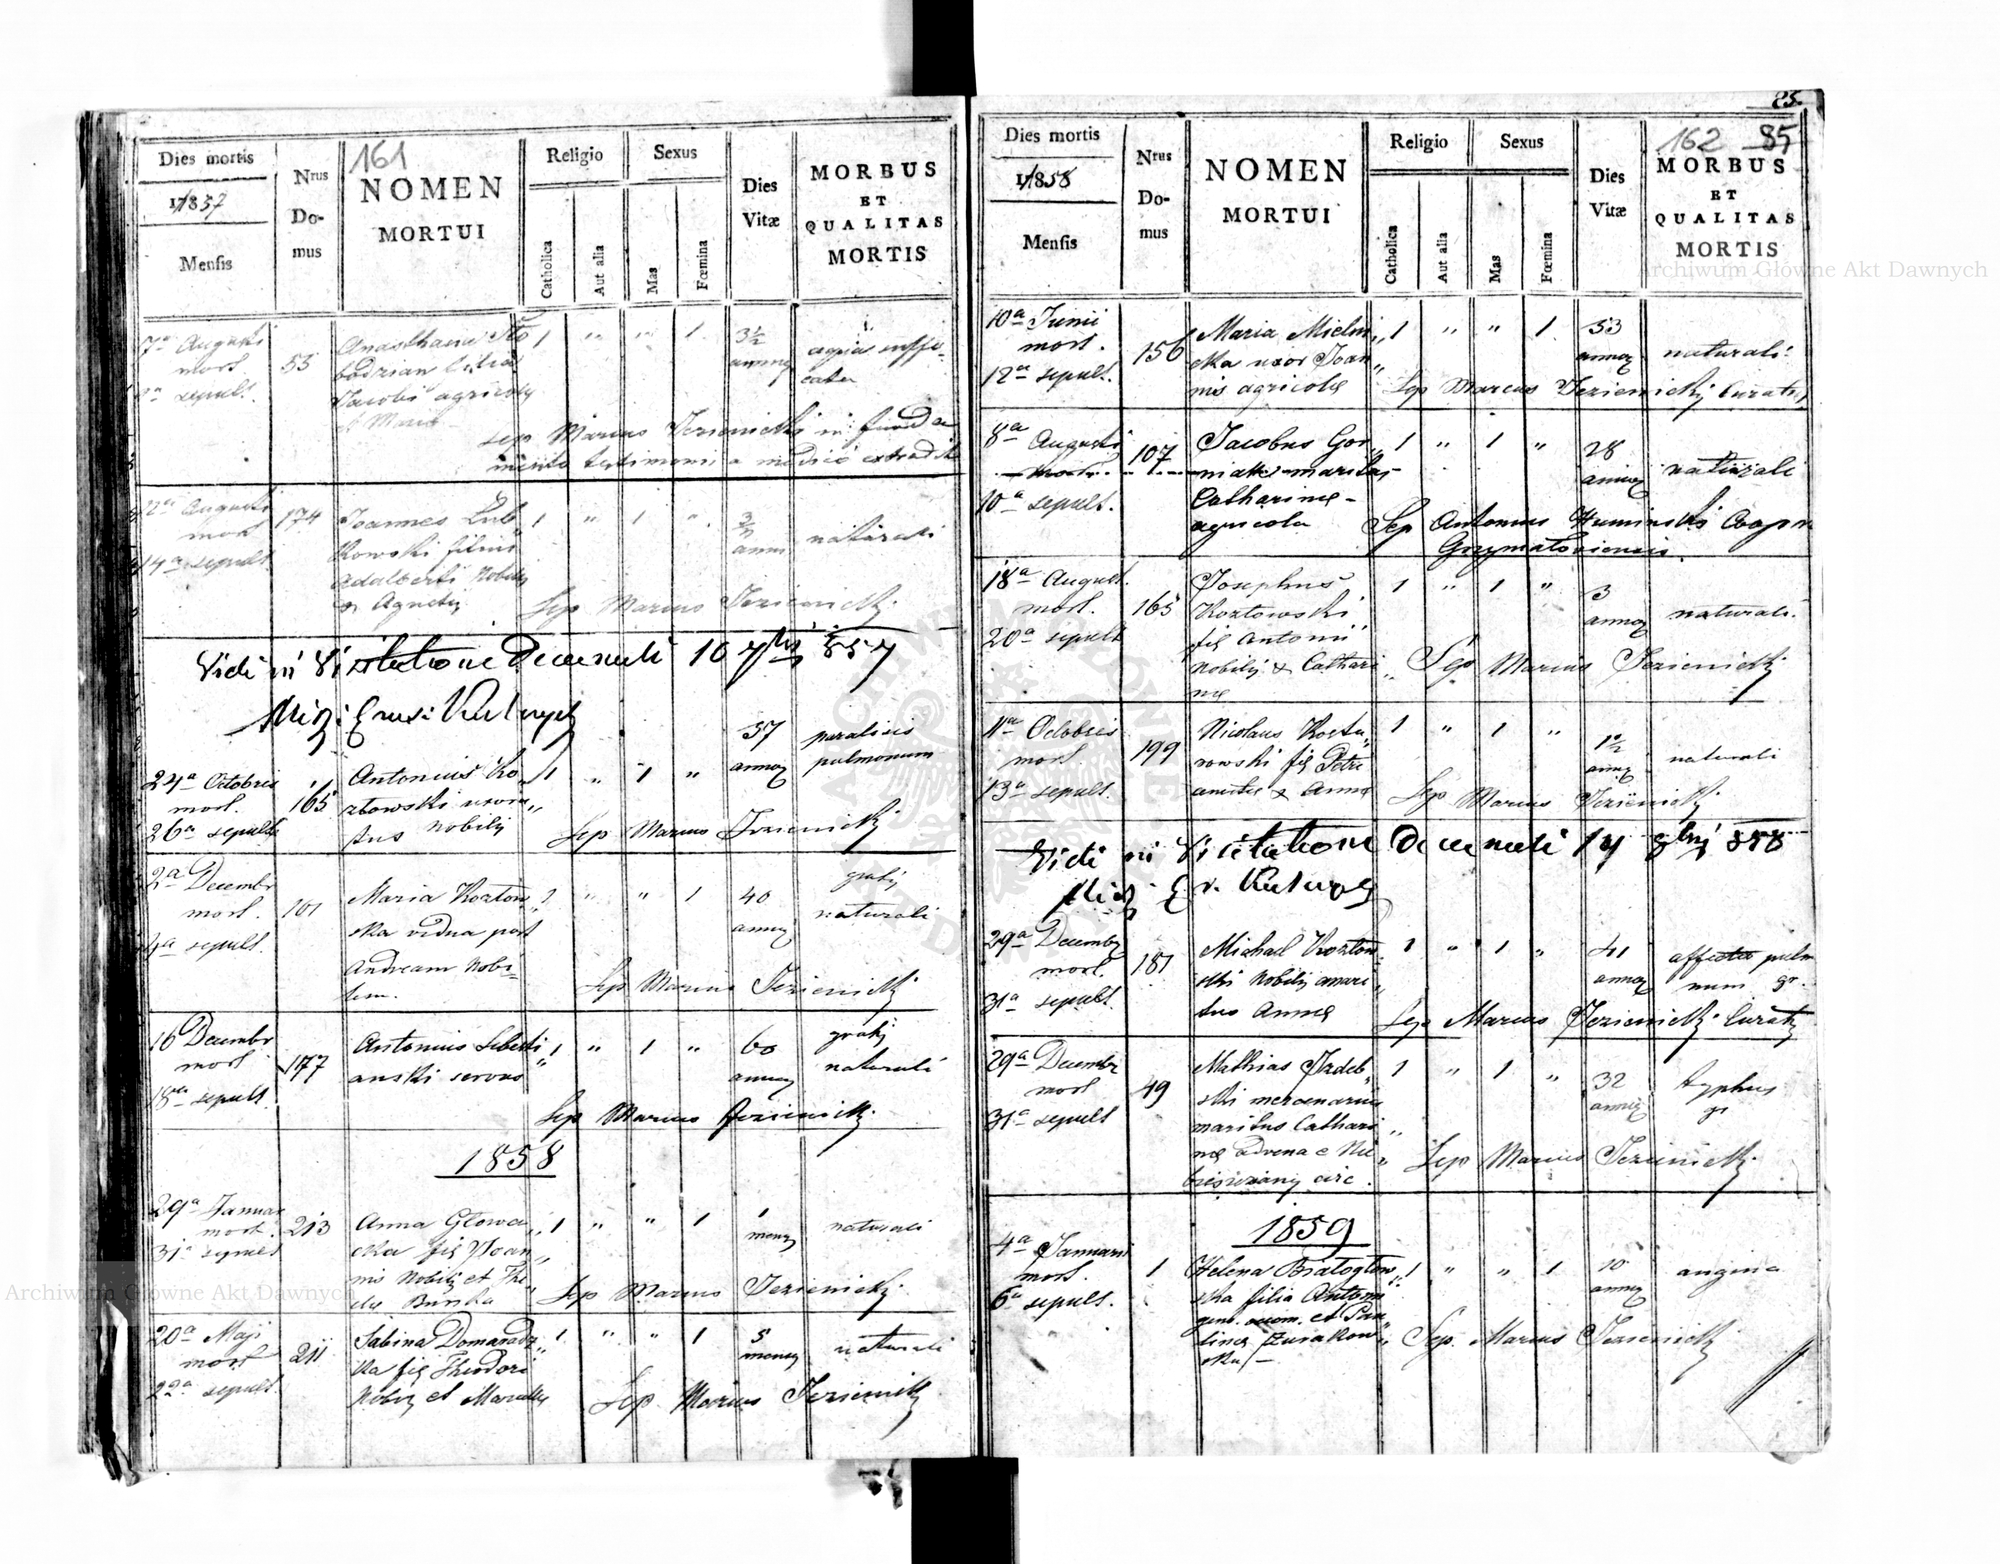 161
Dies mortis
1857
Mensis
Nrus
Do-
mus
NOMEN
MORTUI
Religio
Catholica
Aut alia
Sexus
Mas
Fœmina
Dies
Vitæ
MORBUS
ET
QUALITAS
MORTIS
7a Augusti
mort.
sepult.
53
Anasthasia
filia
Jacobi agricolę
1 " " 1
3½
annor
Sep Marcus Jezienicki in funda
mento testimonii a medico extradit
12a Augusti
mort
14a sepult.
174
Joannes Lub
kowski filius
Adalberti Nobilis
& Agnetis
1 " 1 "
annor
naturali
Sep Marcus Jezienicki
Vidi in Visitatione Decanali 10 7bris 857
24a Octobris
mort.
26a sepult
165
Antonius Ko,,
złowski uxora,,
tus Nobilis
1 " 1 "
57
annor
paralisis
pulmonum
Sep Marcus Jezienicki
2a Decembr
mort.
4a sepult.
101
Maria Kozłow,,
ska vidua post
Andream Nobi-
lem.
1 " " 1
40
annor
naturali
Sep Marcus Jezienicki
16 Decembr
mort
18a sepult.
177
Antonius Sebesti
anski servus
1 " 1 "
60
annor
naturali
Sep Marcus Jezienicki
1858
29a Januar
mort.
31a sepult
213
Anna Głowa,,
cka fię Joan,,
nis Nobilis et The
clę Burska
1 " " 1
1
mens
naturali
Sep Marcus Jezienicki
20a Maji
mort
22a sepult.
211
Sabina Domaradz,,
ka fię Theodori
Nobilis et Marcellę
1 " " 1
5
mens
naturali
Sep Marcus Jezienicki
85.
162 85
Dies mortis
1858
Mensis
Nrus
Do-
mus
NOMEN
MORTUI
Religio
Catholica
Aut alia
Sexus
Mas
Fœmina
Dies
Vitæ
MORBUS
ET
QUALITAS
MORTIS
10a Junii
mort.
12a sepult.
156
Maria Mielni,,
cka uxor Joan,,
nis agricolę
1 " " 1
53
annor
naturali
Sep Marcus Jezienicki Curatus
8a Augusti
mort.
10a sepult.
107
Jacobus Gor,,
niak maritus
Catharinę -
agricola
1 " 1 "
28
annor
naturali
Sep Antonius Huminski Coop
Grzymałoviensis
18a August.
mort.
20a sepult
165
Josephus
Kozłowski
fię Antonii
Nobilis & Cathari,,
nę
1 " 1 "
3
annor
naturali.
Sep Marcus Jezienicki
11a Octobris
mort
13a sepult.
199
Nicolaus
fię Petri
& Annę
1 " 1 "
1½
annor
naturali
Sep Marcus Jezienicki
Vidi in Visitatione Decanali 14 8bris 858
29a Decembr
mort.
31a sepult
181
Michael Kozłow,,
ski Nobilis mari,,
tus Annę
1 " 1 "
41
annor
Sep Marcus Jezienicki Curatus
29a Decembr
mort
31a sepult
49
Mathias Izdeb,,
ski mercenarius
maritus Cathari,,
nę advena e
1 " 1 "
32
annor
typhus
Sep Marcus Jezienicki
1859
4a Januarii
mort.
6a sepult.
1
Helena Białogłow,,
ska filia Antoni
et Pau,,
linę Żurakow,,
ska/-
1 " " 1
10
annor
angina
Sep. Marcus Jezienicki
Archiwum Główne Akt Dawnych
Archiwum Główne Akt Dawnych